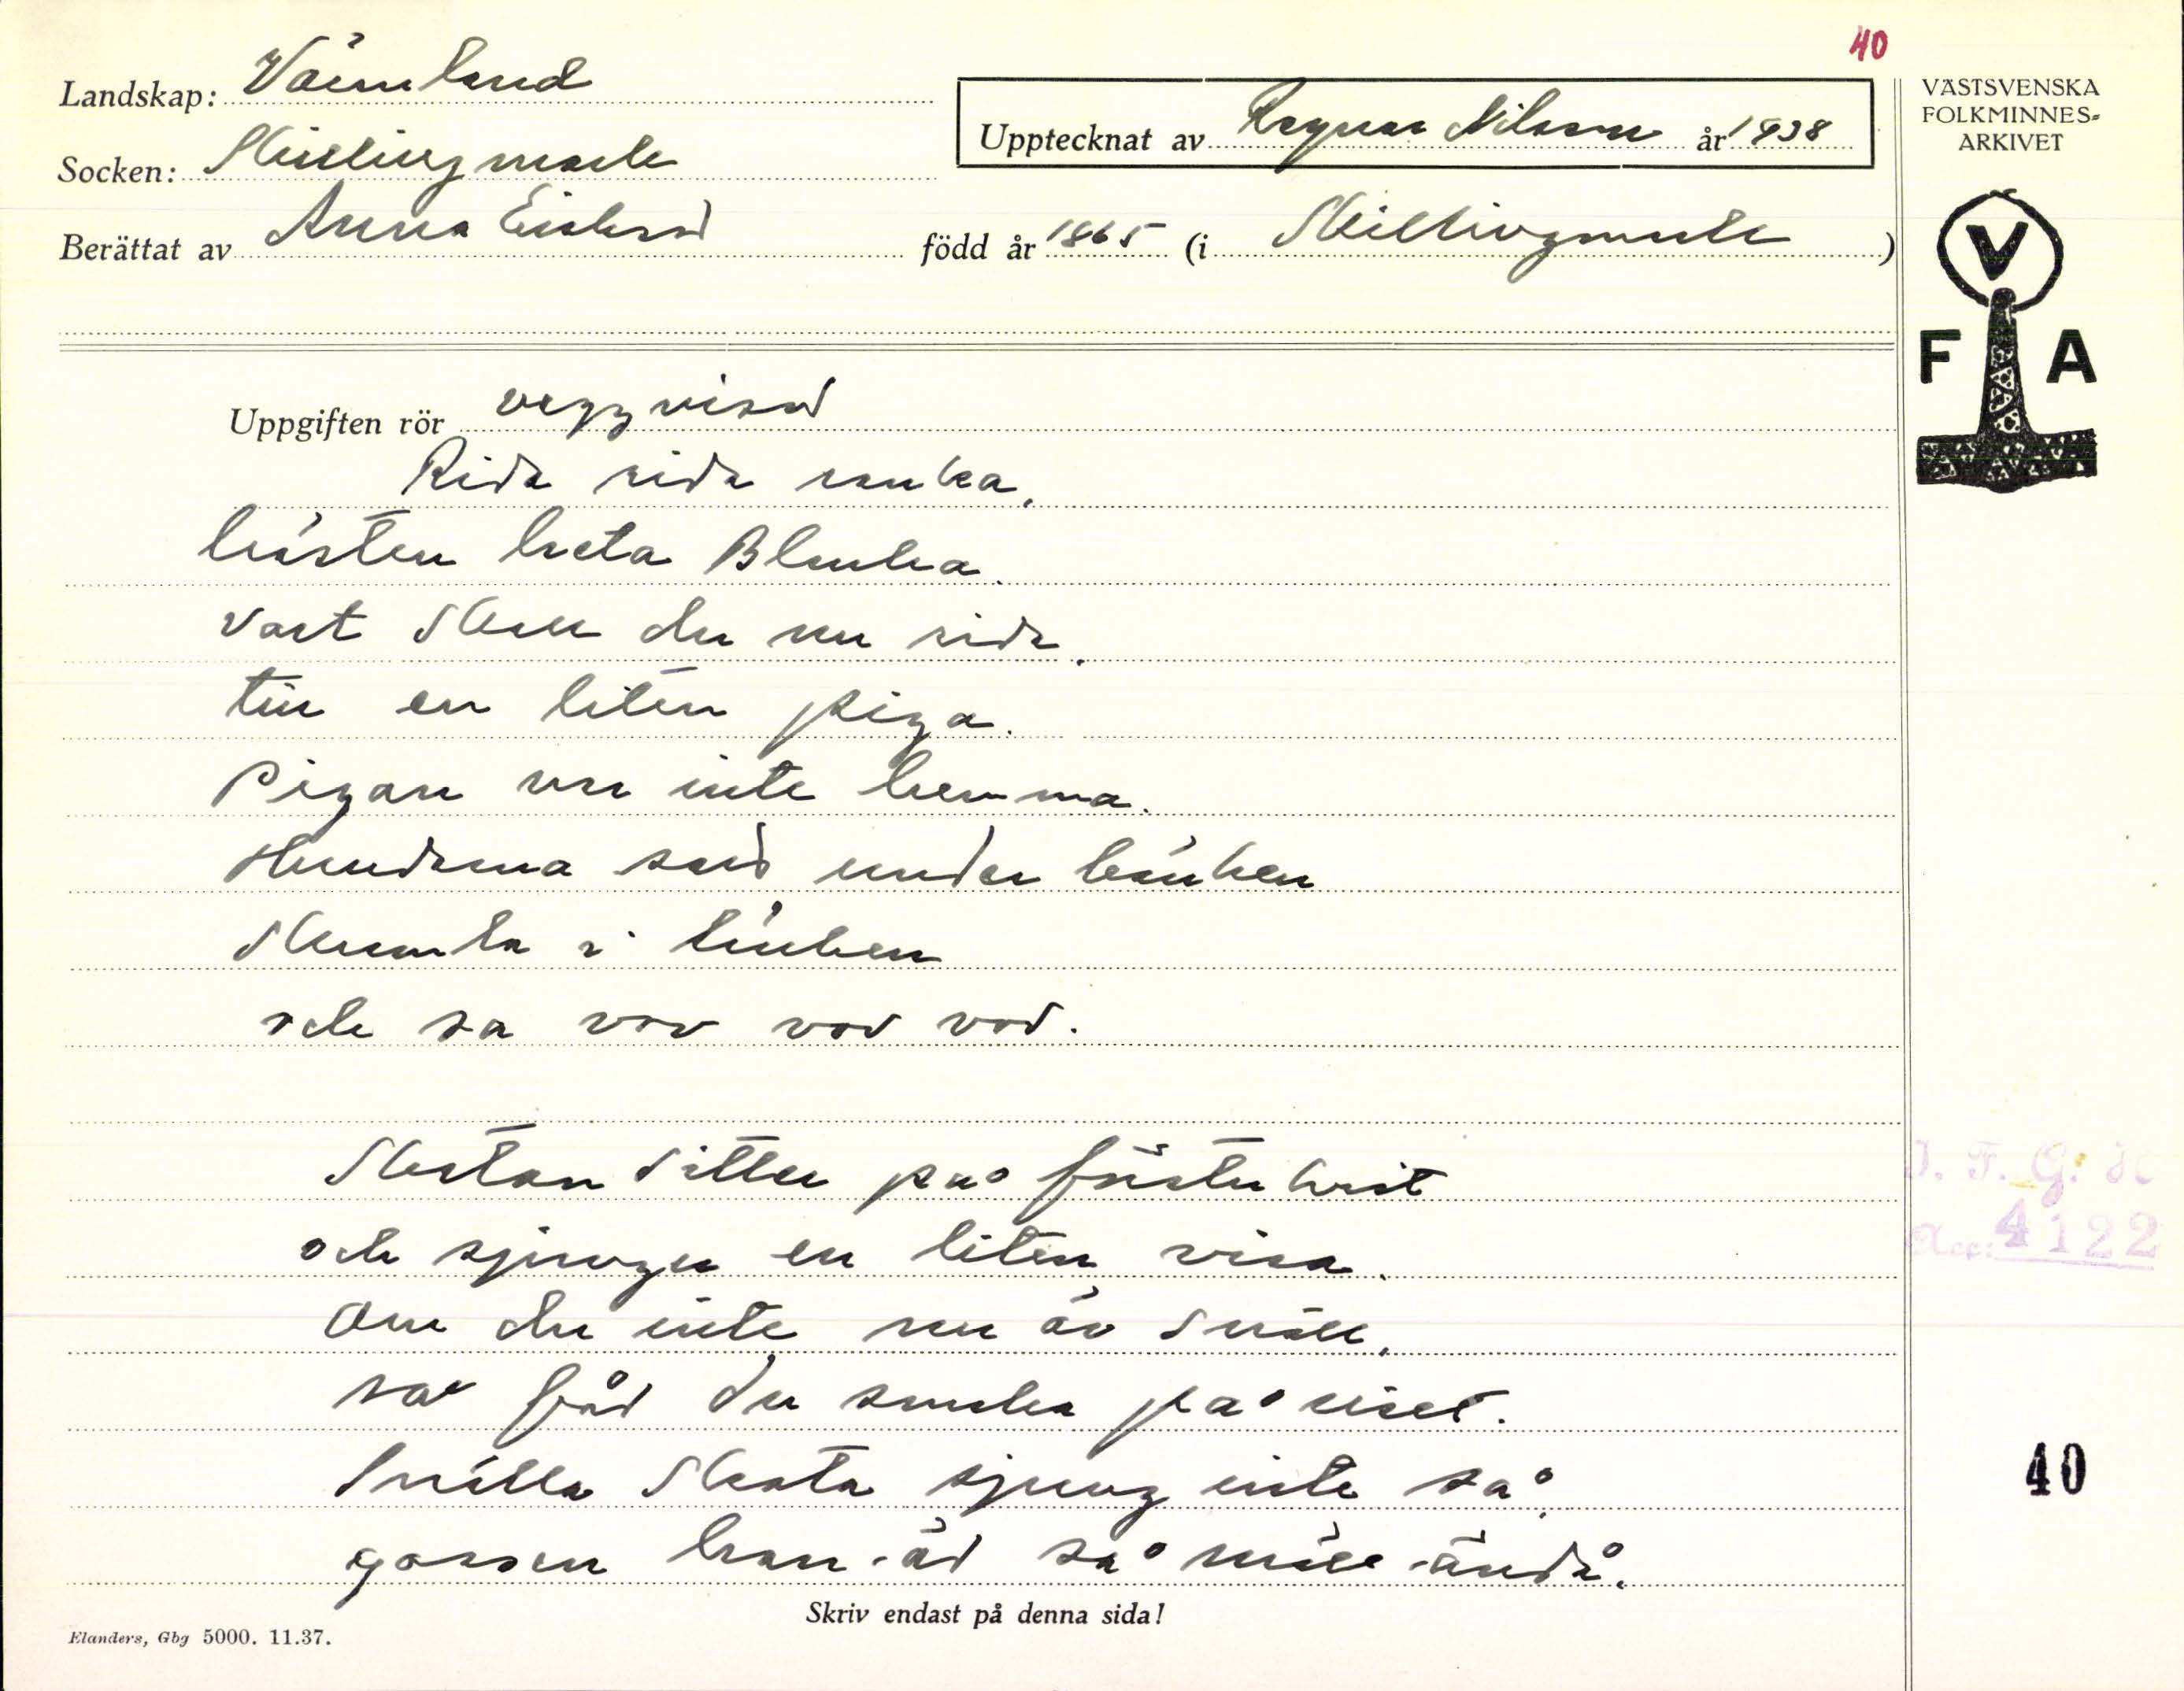 40
Landskap: Värmland
Upptecknat av Ragnar Nilsson år 1938
Socken: Skillingmark
Berättat av Anna född år 1865 (i Skillingmark)
VÄSTSVENSKA
FOLKMINNES=
ARKIVET
V
F A
Uppgiften rör vaggvisor
Rida rida ranka,
hästen heta Blanka.
Vart skall du nu rida,
till en liten piga.
Pigan var inte hemma.
Hundarna under bänken
i länken
och sa vov vov vov.
Skatan sitter på förstukvist
och sjunger en liten visa.
Om du inte nu är snäll,
så får du smaka på riset.
Snälla Skata sjung inte så,
gossen han är så snäll ändå.
I. F. G:s
Acc: 4122
40
Skriv endast på denna sida!
Elanders, Gbg 5000. 11.37.